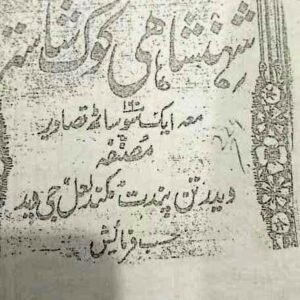 شہنشاہی کوک شاستر
۱۶۰
معہ ایک سو ساٹھ تصاویر
مصنفہ
ویدرتن پنڈت مکند لعل جی وید
حسب فرمائش